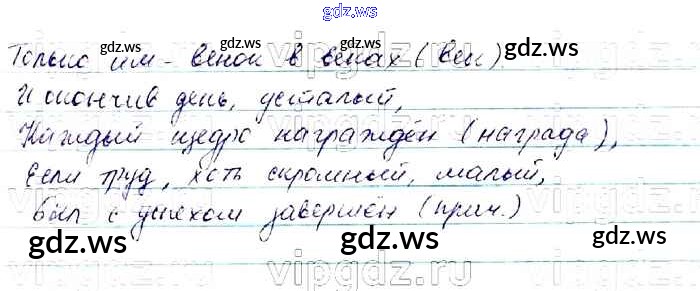 gdz.ws
gdz.ws gdz.ws gdz.ws
Только им - венок в веках (век).
И окончив день, усталый,
Каждый щедро награждён (награда),
Если труд, хоть скромный, малый,
Был с успехом завершён (прич.)
gdz.ws gdz.ws gdz.ws
vipgdz.ru